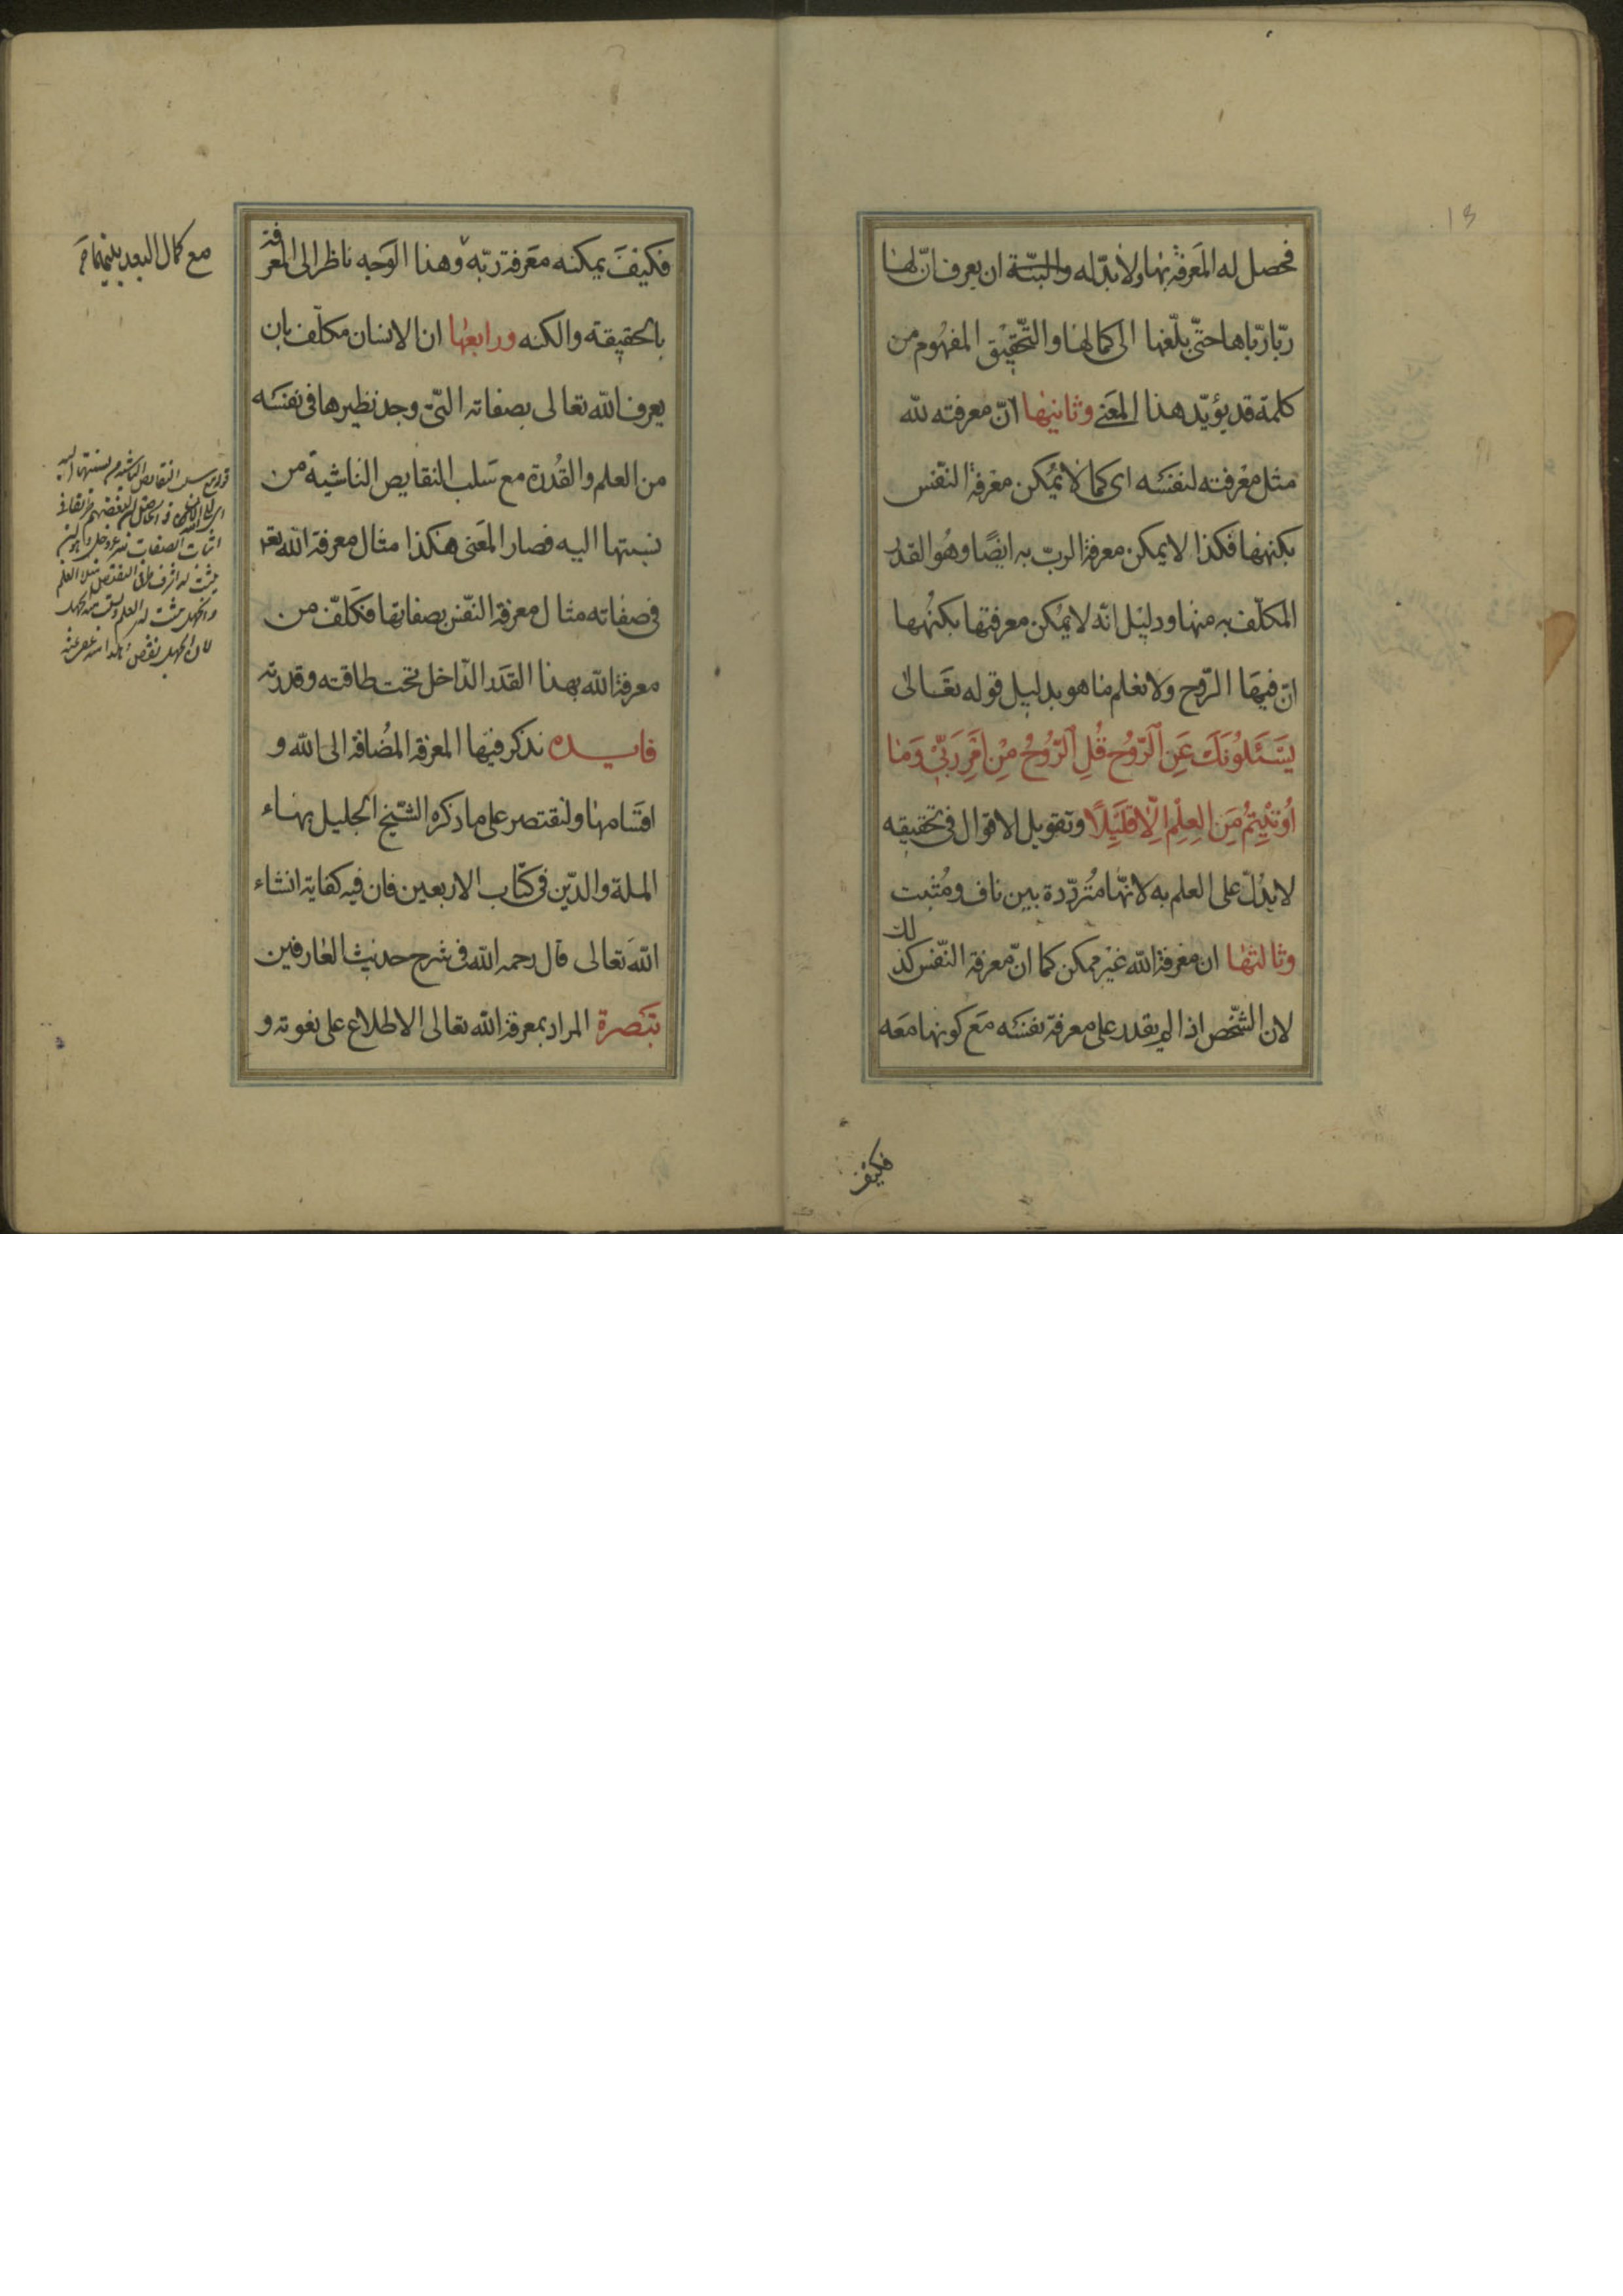 13
فحصل له المعرفة بها ولا بدّ له والبتّة ان يعرف انّ لها
ربّا ربّاها حتّى بلّغها الى كمالها والتّحقيق المفهوم من
كلمة قد يؤيّد هذا المعنى وثانيها انّ معرفته لله
مثل معرفته لنفسه اى كما لا يمكن معرفة النّفس
بكنهها فكذا لا يمكن معرفة الربّ به ايضًا وهو القدر
المكلّف به منها ودليل انّه لا يمكن معرفتها بكنهها
انّ فيها الرّوح ولا نعلم ما هو بدليل قوله تعالى
يَسْئَلُونَكَ عَنِ الرُّوحِ قُلِ الرُّوحُ مِنْ اَمْرِ رَبّى وَمَا
اُوتيتُمْ مِنَ العِلْمِ اِلّا قَليلًا وتقويل الاقوال فى تحقيقه
لا يدلّ على العلم به لانّها متردّدة بين ناف ومثبت
وثالثها ان معرفة الله غير ممكن كما انّ معرفة النّفس كذلك
لان الشّخص اذا لم يقدر على معرفة نفسه مع كونها معه
فكيف
فكيف يمكنه معرفة ربّه وهذا الوجه ناظر الى المعرفة
بالحقيقة والكنه ورابعها ان الانسان مكلّف بان
يعرف الله تعالى بصفاته الّتى وجد نظيرها فى نفسه
من العلم والقدرة مع سلب النقايص الناشية من
نسبتها اليه فصار المعنى هكذا مثال معرفة الله تع
فى صفاته مثال معرفة النّفس بصفاتها فكلّف من
معرفة الله بهذا القدر الدّاخل تحت طاقته وقدرته
فايده نذكر فيها المعرفة المضافة الى الله و
اقسامها ولنقتصر على ما ذكره الشّيخ الجليل بهاء
الملة والدّين فى كتاب الاربعين فان فيه كفاية انشاء
الله تعالى قال رحمه الله فى شرح حديث العارفين
تبصرة المراد بمعرفة الله تعالى الاطلاع على نعوته و
مع كمال البعد بينهما